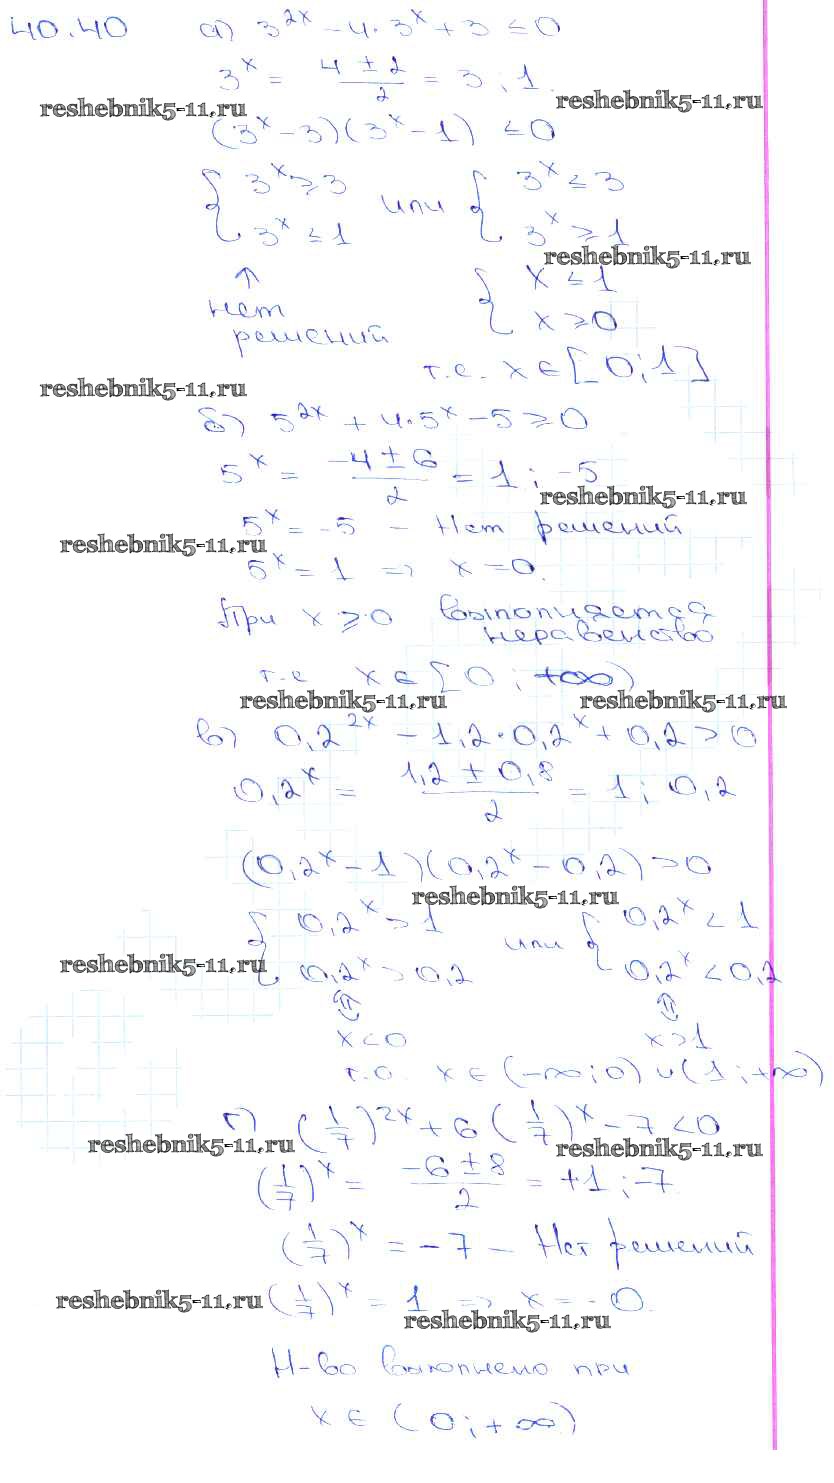 40.40 а) 3^{2x} - 4·3^x + 3 ≤ 0
3^x = \frac{4 ± 2}{2} = 3 ; 1
reshebnik5-11.ru reshebnik5-11.ru
(3^x - 3)(3^x - 1) ≤ 0
{ 3^x ≥ 3 или { 3^x ≤ 3
3^x ≤ 1 3^x ≥ 1
reshebnik5-11.ru
↑ { x ≤ 1
нет x ≥ 0
решений
т.е. x ∈ [0; 1]
reshebnik5-11.ru
б) 5^{2x} + 4·5^x - 5 ≥ 0
5^x = \frac{-4 ± 6}{2} = 1 ; -5
reshebnik5-11.ru
5^x = -5 - Нет решений
reshebnik5-11.ru
5^x = 1 => x = 0.
При x ≥ 0 выполняется
неравенство
т.е x ∈ [0 ; +∞)
reshebnik5-11.ru reshebnik5-11.ru
в) 0,2^{2x} - 1,2·0,2^x + 0,2 > 0
0,2^x = \frac{1,2 ± 0,8}{2} = 1 ; 0,2
(0,2^x - 1)(0,2^x - 0,2) > 0
reshebnik5-11.ru
{ 0,2^x > 1 или { 0,2^x < 1
reshebnik5-11.ru
0,2^x > 0,2 0,2^x < 0,2
⇕ ⇕
x < 0 x > 1
т.о. x ∈ (-∞; 0) ∪ (1; +∞)
г) (\frac{1}{7})^{2x} + 6(\frac{1}{7})^x - 7 < 0
reshebnik5-11.ru reshebnik5-11.ru
(\frac{1}{7})^x = \frac{-6 ± 8}{2} = +1 ; -7
(\frac{1}{7})^x = -7 - Нет решений
reshebnik5-11.ru (\frac{1}{7})^x = 1 => x = 0.
reshebnik5-11.ru
Н-во выполнено при
x ∈ (0; +∞)